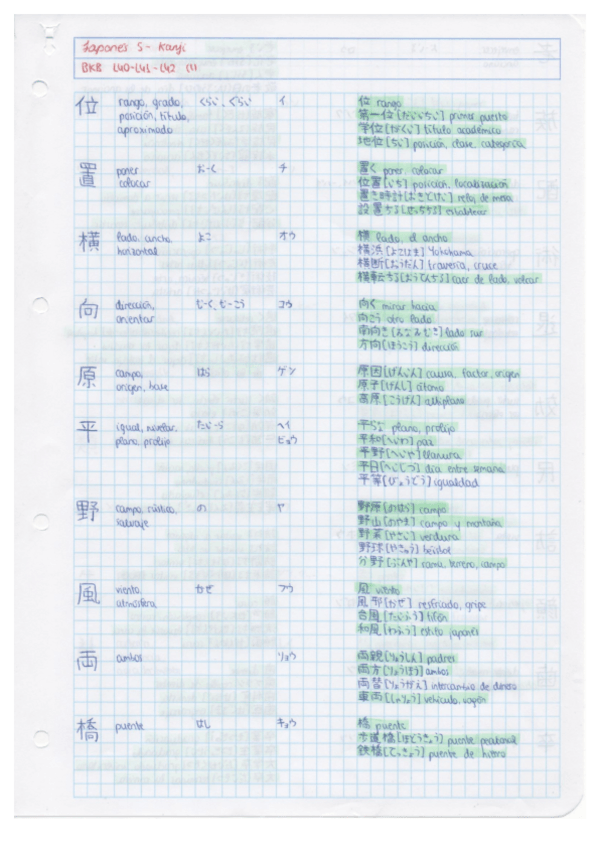 Japonés 5 - Kanji
BKB L40-L41-L42 (1)
位 rango, grado, くらい、ぐらい イ 位 rango
posición, título, 第一位[だいいちい] primer puesto
aproximado 学位[がくい] título académico
地位[ちい] posición, clase, categoría
置 poner お-く チ 置く poner, colocar
colocar 位置[いち] posición, localización
置き時計[おきどけい] reloj de mesa
設置する[せっちする] establecer
横 lado, ancho, よこ オウ 横 lado, el ancho
horizontal 横浜[よこはま] Yokohama
横断[おうだん] travesía, cruce
横転する[おうてんする] caer de lado, volcar
向 dirección, む-く、む-こう コウ 向く mirar hacia
orientar 向こう otro lado
南向き[みなみむき] lado sur
方向[ほうこう] dirección
原 campo, はら ゲン 原因[げんいん] causa, factor, origen
origen, base 原子[げんし] átomo
高原[こうげん] altiplano
平 igual, nivelar, たい-ら ヘイ 平らな plano, prolijo
plano, prolijo ビョウ 平和[へいわ] paz
平野[へいや] llanura
平日[へいじつ] día entre semana
平等[びょうどう] igualdad
野 campo, rústico, の ヤ 野原[のはら] campo
salvaje 野山[のやま] campo y montaña
野菜[やさい] verdura
野球[やきゅう] béisbol
分野[ぶんや] rama, terreno, campo
風 viento, かぜ フウ 風 viento
atmósfera 風邪[かぜ] resfriado, gripe
台風[たいふう] tifón
和風[わふう] estilo japonés
両 ambos リョウ 両親[りょうしん] padres
両方[りょうほう] ambos
両替[りょうがえ] intercambio de dinero
車両[しゃりょう] vehículo, vagón
橋 puente はし キョウ 橋 puente
歩道橋[ほどうきょう] puente peatonal
鉄橋[てっきょう] puente de hierro